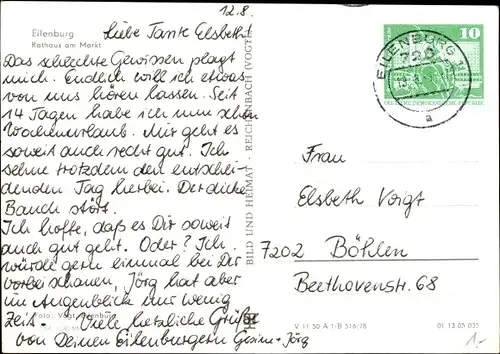 12.8.
Eilenburg
Rathaus am Markt
Liebe Tante Elsbeth!
Das schlechte Gewissen plagt
mich. Endlich will ich etwas
von uns hören lassen. Seit
14 Tagen habe ich nun schon
Wochenurlaub. Mir geht es
soweit auch recht gut. Ich
sehne trotzdem den entschei-
denden Tag herbei. Der dicke
Bauch stört.
Ich hoffe, daß es Dir soweit
auch gut geht. Oder? Ich
würde gern einmal bei Dir
vorbeischauen, Jörg hat aber
im Augenblick nur wenig
Zeit. Viele herzliche Grüße
von Deinen Eilenburgern Gesine + Jörg
Foto: Vogt, Eilenburg
BILD UND HEIMAT · REICHENBACH (VOGTL)
10
DEUTSCHE DEMOKRATISCHE REPUBLIK
EILENBURG 1
728
a
Frau
Elsbeth Voigt
7202 Böhlen
Beethovenstr. 68
V 11 50 A 1/B 516/78
01 13 05 035
1,-